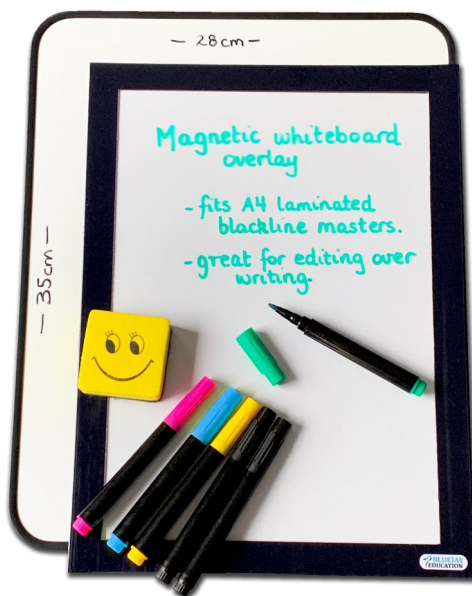 - 28cm -
- 35cm -
Magnetic whiteboard
overlay
- fits A4 laminated
blackline masters.
- great for editing over
writing.
BLUEJAY
EDUCATION